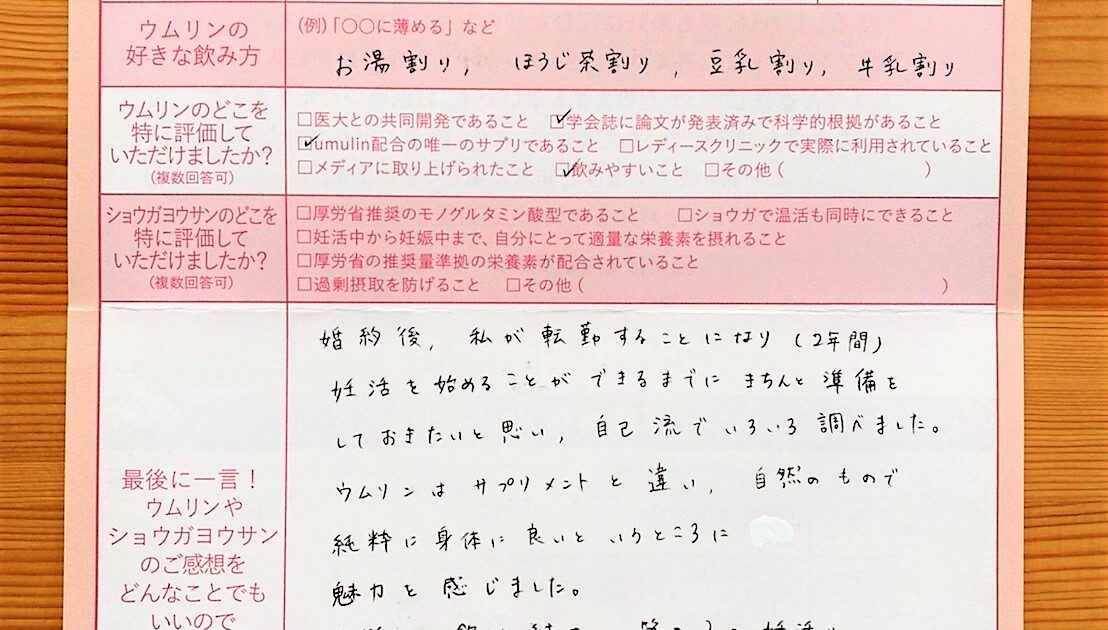 ウムリンの
好きな飲み方
(例)「〇〇に薄める」など
お湯割り, ほうじ茶割り, 豆乳割り, 牛乳割り
ウムリンのどこを
特に評価して
いただけましたか?
(複数回答可)
□医大との共同開発であること ☑学会誌に論文が発表済みで科学的根拠があること
☑umulin配合の唯一のサプリであること □レディースクリニックで実際に利用されていること
□メディアに取り上げられたこと ☑飲みやすいこと □その他( )
ショウガヨウサンのどこを
特に評価して
いただけましたか?
(複数回答可)
□厚労省推奨のモノグルタミン酸型であること □ショウガで温活も同時にできること
□妊活中から妊娠中まで、自分にとって適量な栄養素を摂れること
□厚労省の推奨量準拠の栄養素が配合されていること
□過剰摂取を防げること □その他( )
最後に一言!
ウムリンや
ショウガヨウサン
のご感想を
どんなことでも
いいので
婚約後, 私が転勤することになり(2年間)
妊活を始めることができるまでにきちんと準備を
しておきたいと思い, 自己流でいろいろ調べました。
ウムリンはサプリメントと違い, 自然のもので
純粋に身体に良いというところに
魅力を感じました。